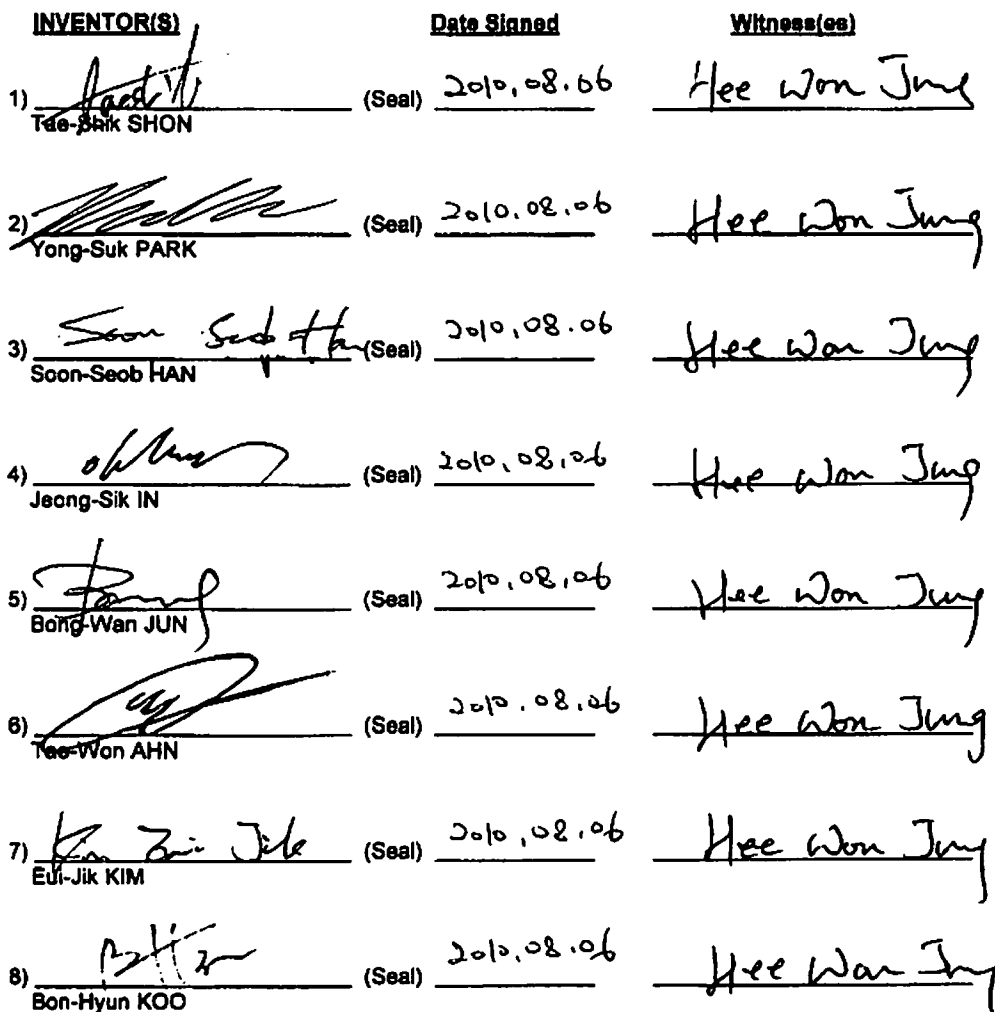 INVENTOR(S) Date Signed Witness(es)
1) (Seal) 2010.08.06 Hee Won Jung
Tae-Shik SHON
2) (Seal) 2010.08.06 Hee Won Jung
Yong-Suk PARK
3) Soon Seob Han (Seal) 2010.08.06 Hee Won Jung
Soon-Seob HAN
4) (Seal) 2010.08.06 Hee Won Jung
Jeong-Sik IN
5) (Seal) 2010.08.06 Hee Won Jung
Bong-Wan JUN
6) (Seal) 2010.08.06 Hee Won Jung
Tae-Won AHN
7) Kim Eui Jik (Seal) 2010.08.06 Hee Won Jung
Eui-Jik KIM
8) (Seal) 2010.08.06 Hee Won Jung
Bon-Hyun KOO